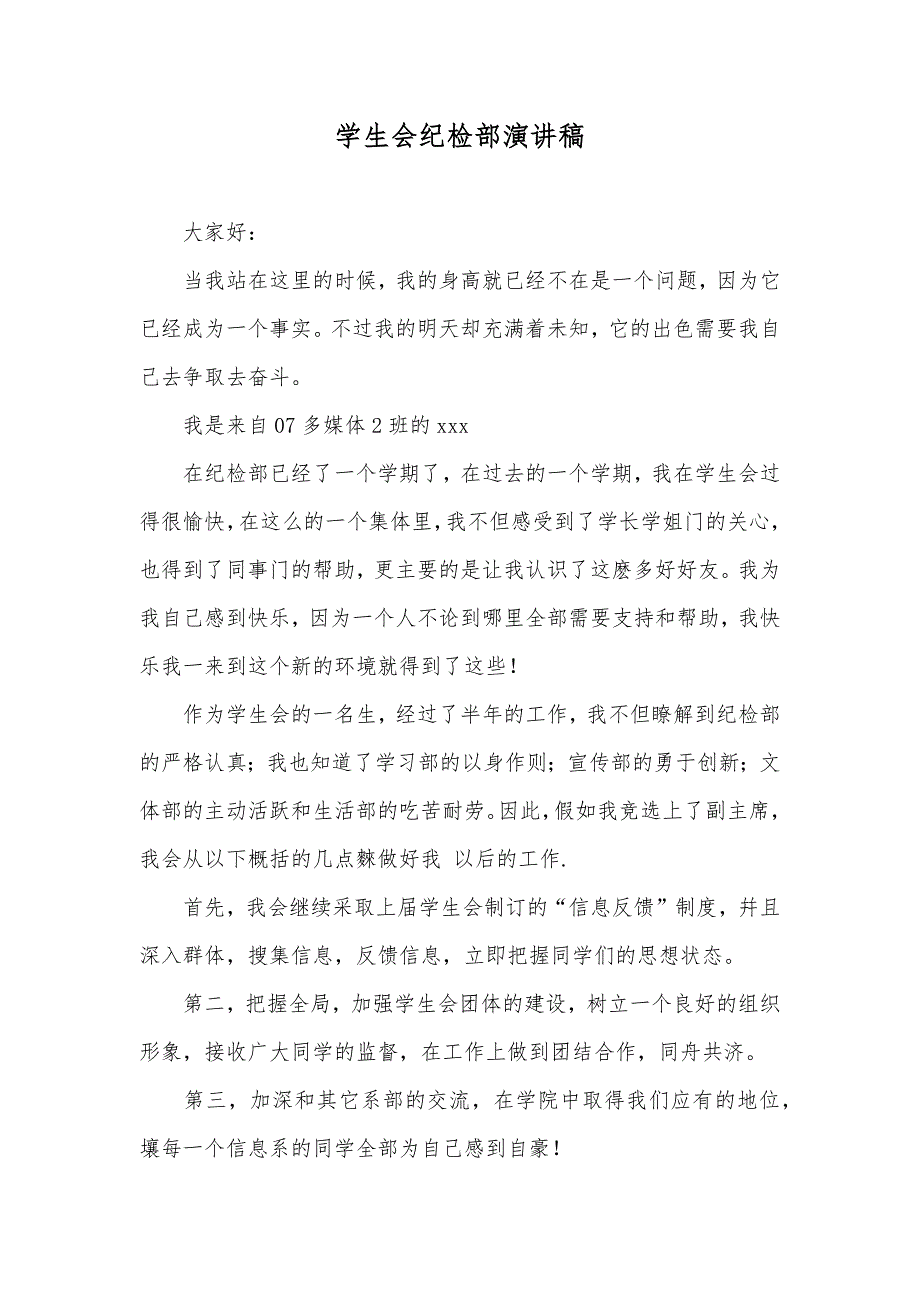 学生会纪检部演讲稿
大家好：
当我站在这里的时候，我的身高就已经不在是一个问题，因为它
已经成为一个事实。不过我的明天却充满着未知，它的出色需要我自
己去争取去奋斗。
我是来自07多媒体2班的xxx
在纪检部已经了一个学期了，在过去的一个学期，我在学生会过
得很愉快，在这么的一个集体里，我不但感受到了学长学姐门的关心，
也得到了同事门的帮助，更主要的是让我认识了这麽多好好友。我为
我自己感到快乐，因为一个人不论到哪里全部需要支持和帮助，我快
乐我一来到这个新的环境就得到了这些！
作为学生会的一名生，经过了半年的工作，我不但瞭解到纪检部
的严格认真；我也知道了学习部的以身作则；宣传部的勇于创新；文
体部的主动活跃和生活部的吃苦耐劳。因此，假如我竞选上了副主席，
我会从以下概括的几点麳做好我 以后的工作.
首先，我会继续采取上届学生会制订的“信息反馈”制度，幷且
深入群体，搜集信息，反馈信息，立即把握同学们的思想状态。
第二，把握全局，加强学生会团体的建设，树立一个良好的组织
形象，接收广大同学的监督，在工作上做到团结合作，同舟共济。
第三，加深和其它系部的交流，在学院中取得我们应有的地位，
壤每一个信息系的同学全部为自己感到自豪！